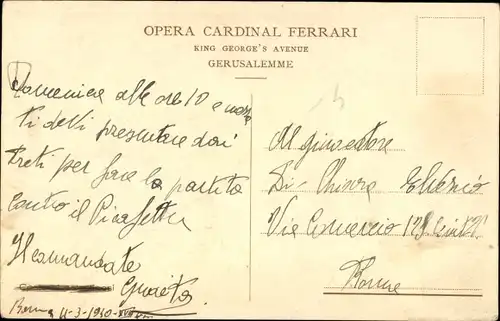 OPERA CARDINAL FERRARI
KING GEORGE'S AVENUE
GERUSALEMME
Domenica alle ore 10 e mezza
ti devi presentare
per fare la partita
contro il Picasetta
Il comandante
Roma 11-3-1930
Al giocatore
Di Chiara
Via Comercio 12
Rome